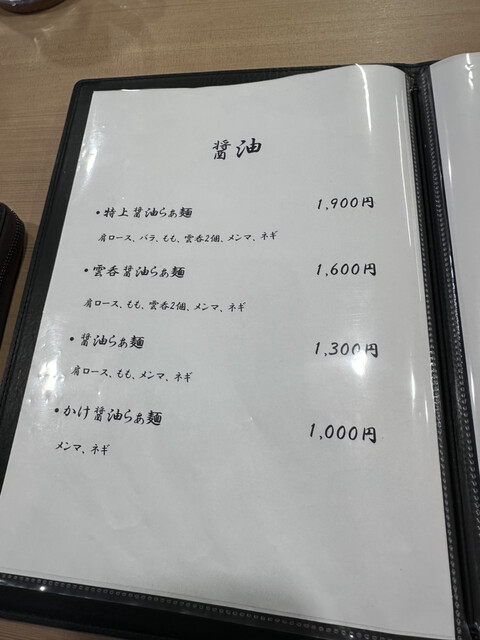 醤油
・特上醤油らぁ麺 1,900円
肩ロース、バラ、もも、雲呑2個、メンマ、ネギ
・雲呑醤油らぁ麺 1,600円
肩ロース、もも、雲呑2個、メンマ、ネギ
・醤油らぁ麺 1,300円
肩ロース、もも、メンマ、ネギ
・かけ醤油らぁ麺 1,000円
メンマ、ネギ